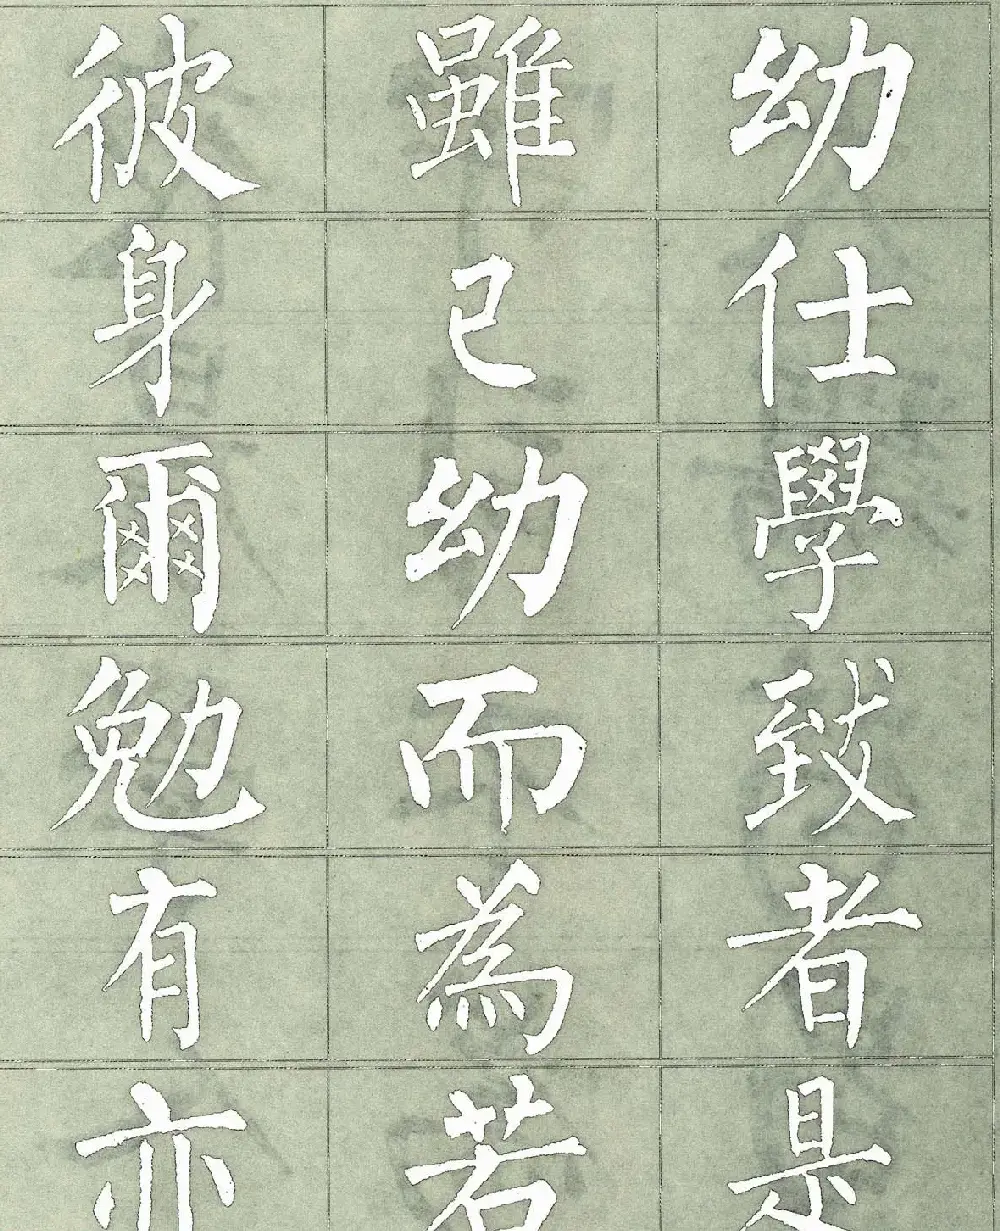 彼雖幼
身已仕
爾幼學
勉而致
有為者
亦若是